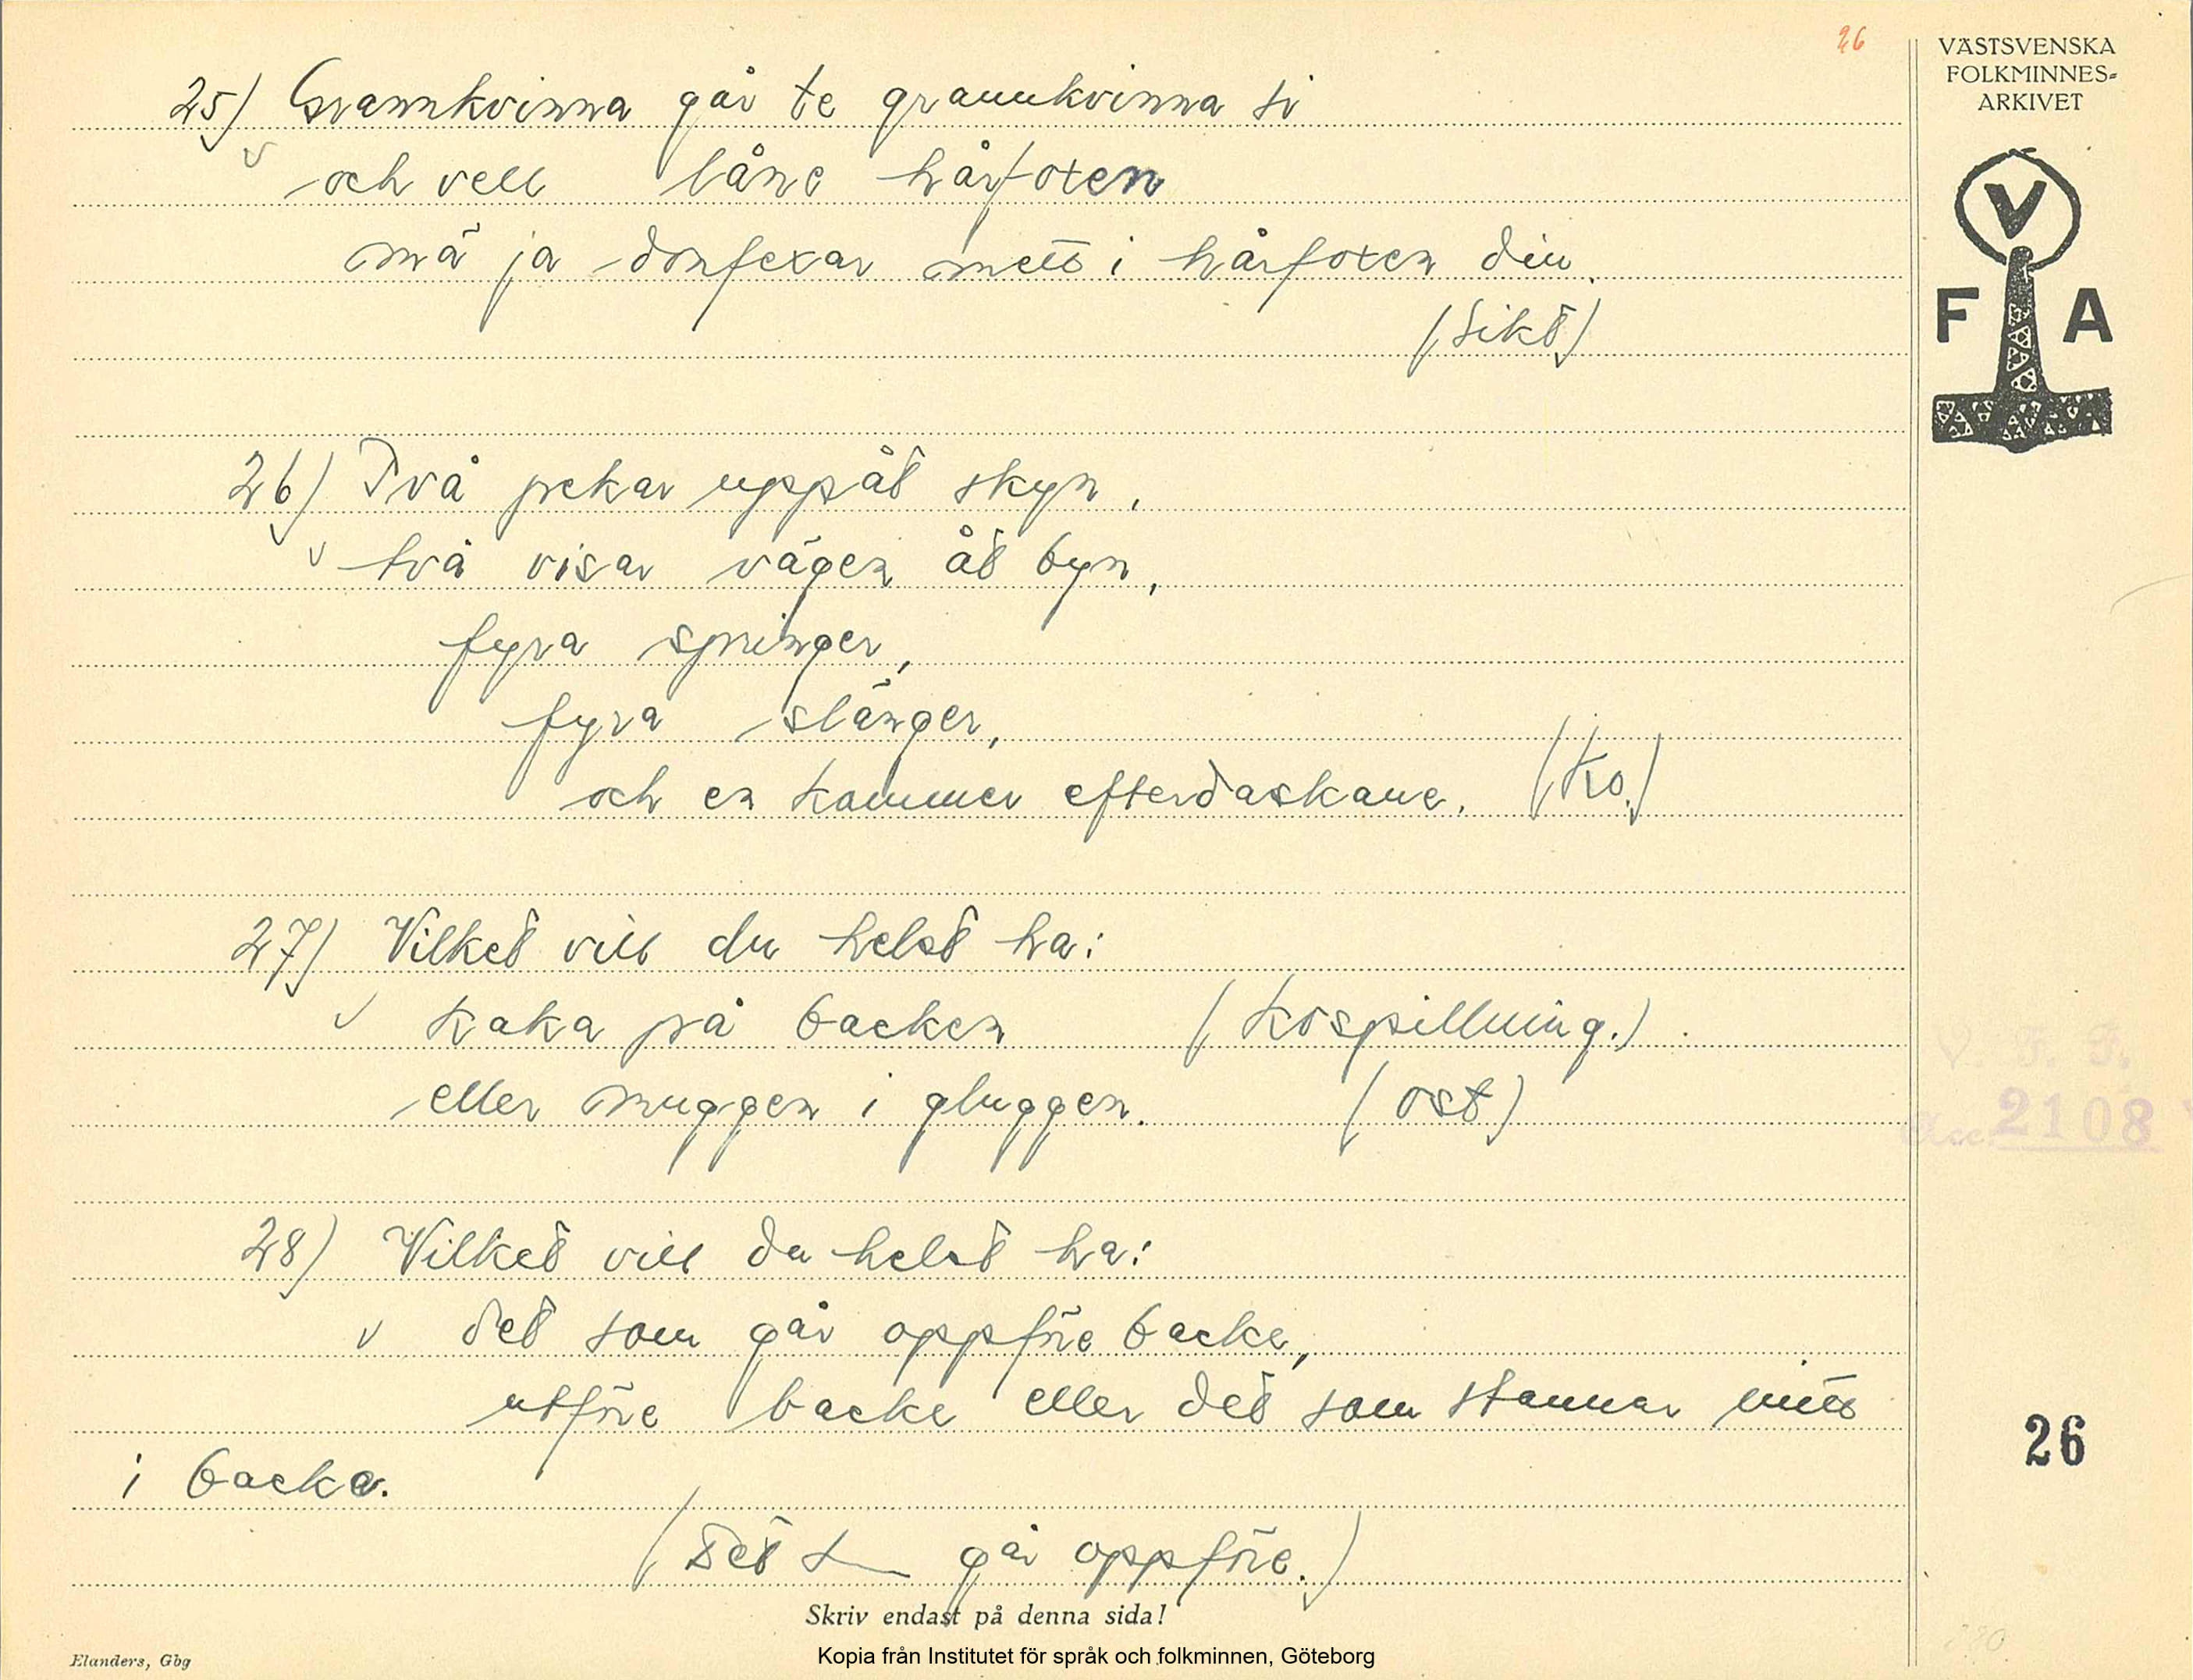 26
VÄSTSVENSKA
FOLKMINNES=
ARKIVET
V
F A
25) Grannkvinna går te grannkvinna si
och vell låne hårfoten
mä ja donfexar mett i hårfoten din.
(Sikt)
26) Två pekar uppåt skyn,
två visar vägen åt byn,
fyra springer,
fyra slänger,
och en kommer efterdaskane. (Ko.)
27) Vilket vill du helst ha:
kaka på backen (kospillning.)
eller muggen i gluggen. (ost)
28) Vilket vill du helst ha:
det som går oppföre backe,
utföre backe eller det som stannar mitt
i backa.
(Det s går oppföre.)
V. F. F.
Acc. 2108
26
Skriv endast på denna sida!
Elanders, Gbg
Kopia från Institutet för språk och folkminnen, Göteborg